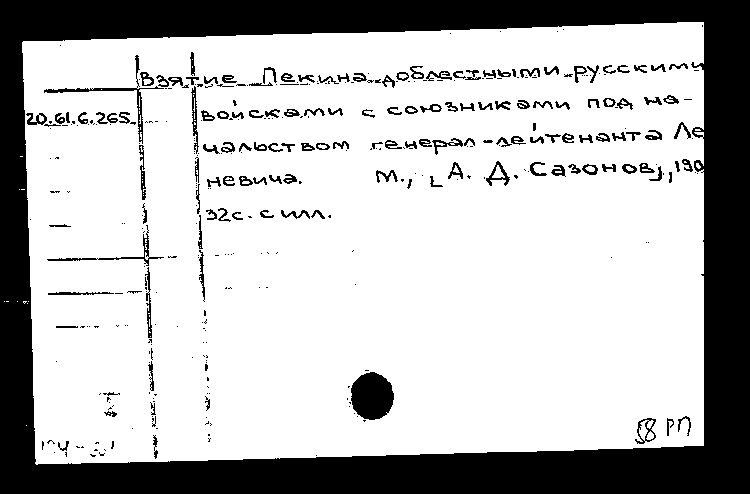 Взятие Пекина доблестными русскими
20.61.6.265. войсками с союзниками под на-
чальством генерал-лейтенанта Ле
невича. М., [А. Д. Сазонов], 190
32с. с илл.
58 РП